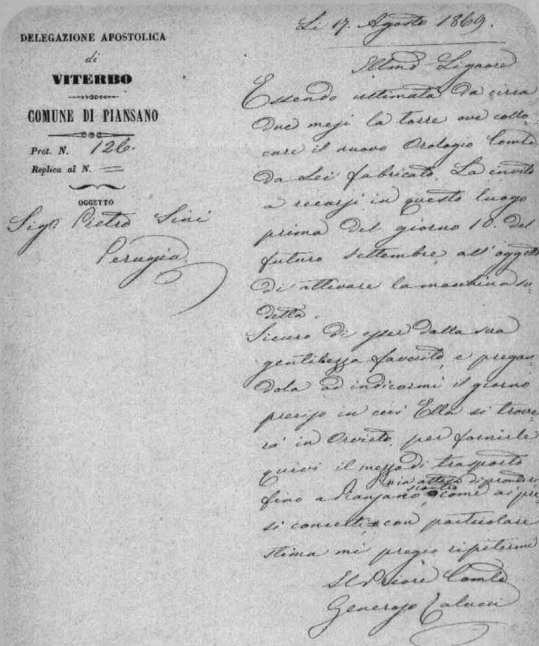 DELEGAZIONE APOSTOLICA
di
VITERBO
COMUNE DI PIANSANO
Prot. N. 126.
Replica al N. =
OGGETTO
Sigr Pietro Sini
Perugia
Li 17. Agosto 1869.
Illmo Signore
Essendo ultimata da circa
due mesi la torre ove collo-
care il nuovo Orologio Comle
da Lei fabricato, La invito
a recarsi in questo luogo
prima del giorno 10. del
futuro settembre all'oggetto
di attivare la macchina su
detta.
Sicuro di esser dalla sua
gentilezza favorito, e pregan
dola ad indicarmi il giorno
preciso in cui Ella si trove
rà in Orvieto, per fornirle
quivi il mezzo di trasporto
fino a Piansano, come ai pre
si concerti, con particolare
stima mi pregio ripetermi
Il Priore Comle
Generoso Colucci